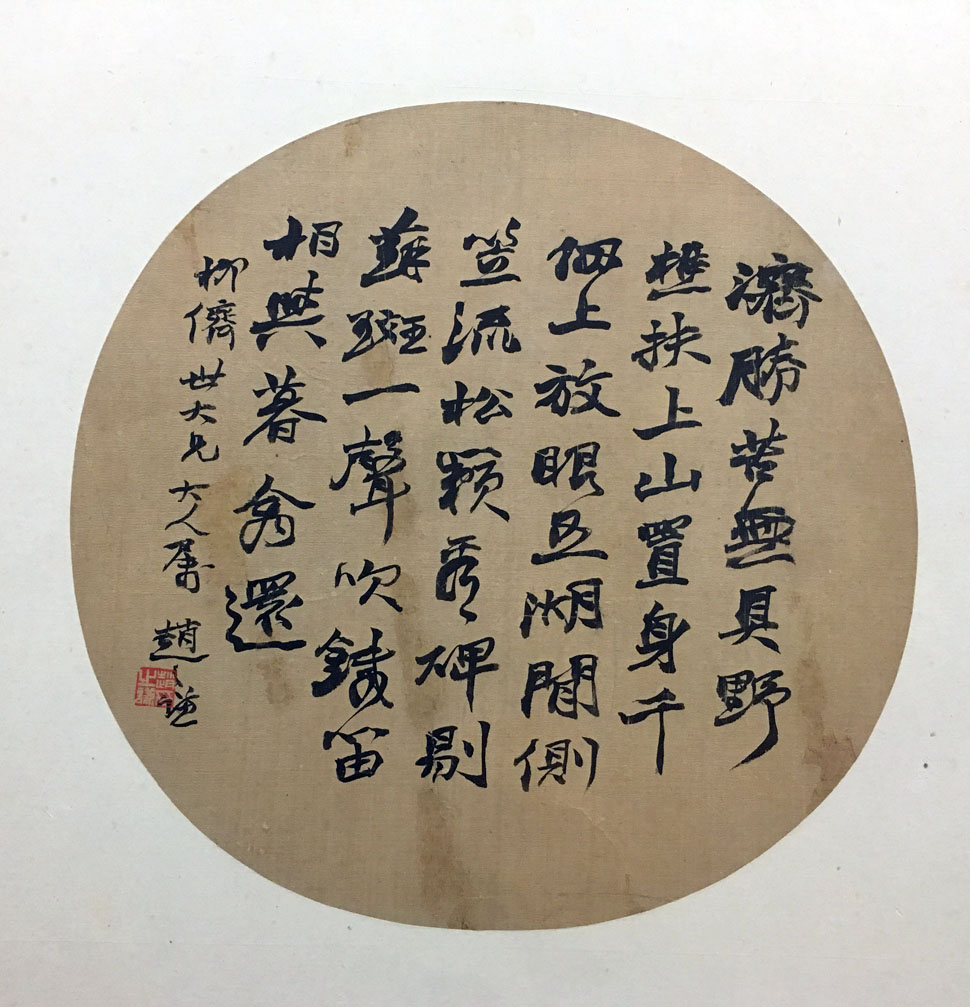 濟勝苦無具野
樵扶上山置身千
仞上放眼五湖間側
笠流松籟看碑剔
蘚斑一聲吹鐵笛
相與暮禽還
柳儕世大兄大人屬 趙之謙